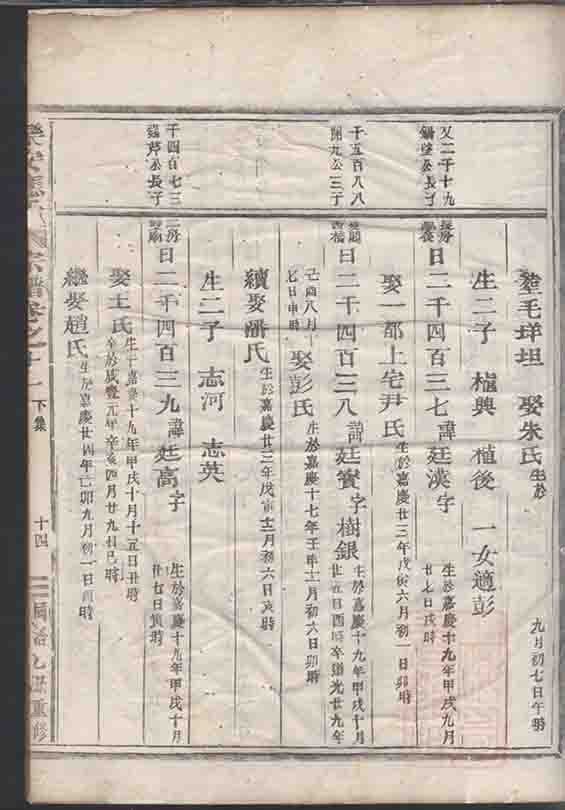 九月初七日午時
毛垟坦 娶朱氏生於
又二千十九
公長子
生二子 樾興 植後 一女適彭
日二千四百三七諱廷漢字
生於嘉慶十九年甲戌九月
廿七日戌時
娶一都上宅尹氏生於嘉慶廿三年戊寅六月初一日卯時
千五百八八
開九公三子
日二千四百三八諱廷賓字樹銀
生於嘉慶十九年甲戌十月
廿五日酉時卒道光廿九年
己酉八月十
七日申時
娶彭氏生於嘉慶十七年壬申十一月初六日卯時
續娶潘氏生於嘉慶廿三年戊寅十二月初六日亥時
生二子 志河 志英
千四百七三
芹公長子
日二千四百三九諱廷高字
生於嘉慶十九年甲戌十月
廿七日寅時
娶王氏
生於嘉慶十九年甲戌十月十五日丑時
卒於咸豐元年辛亥四月廿九日巳時
繼娶趙氏生於嘉慶廿四年己卯九月初一日酉時
宗譜卷之十一 下集 十四 同治乙丑重修